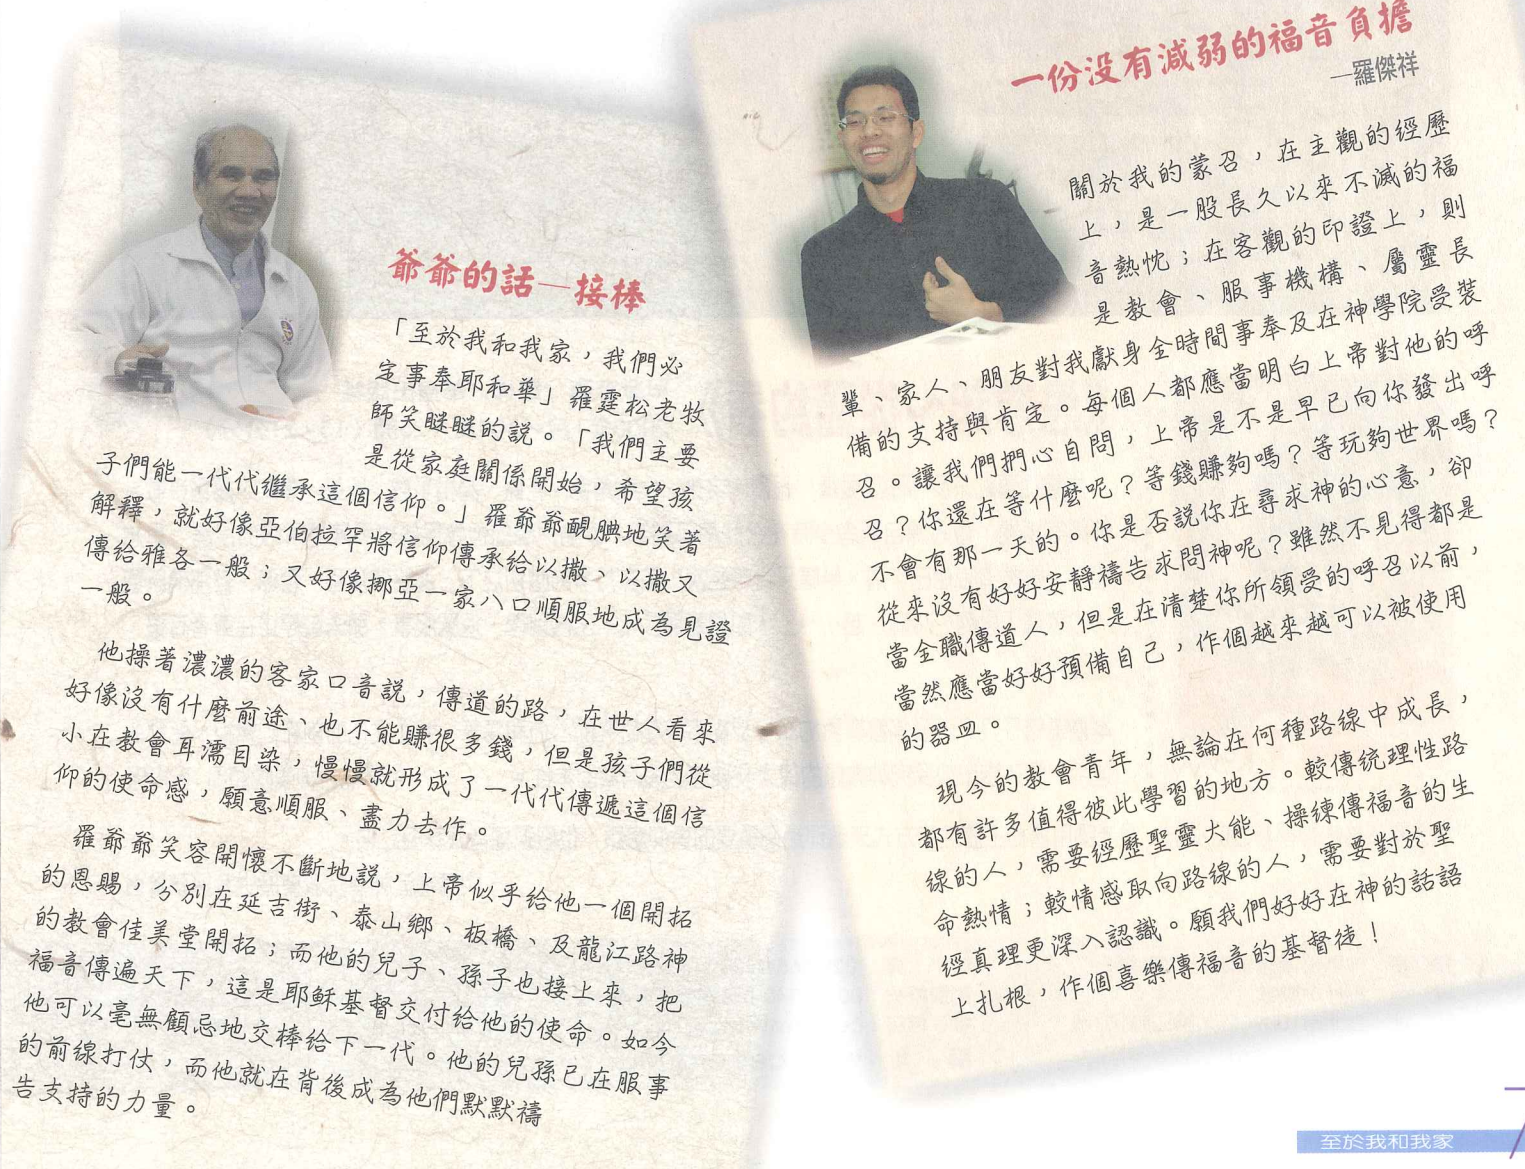 爺爺的話—接棒
「至於我和我家，我們必
定事奉耶和華」羅霆松老牧
師笑瞇瞇的說。「我們主要
是從家庭關係開始，希望孩
子們能一代代繼承這個信仰。」羅爺爺靦腆地笑著
解釋，就好像亞伯拉罕將信仰傳承給以撒、以撒又
傳給雅各一般；又好像挪亞一家八口順服地成為見證
一般。
他操著濃濃的客家口音說，傳道的路，在世人看來
好像沒有什麼前途、也不能賺很多錢，但是孩子們從
小在教會耳濡目染，慢慢就形成了一代代傳遞這個信
仰的使命感，願意順服、盡力去作。
羅爺爺笑容開懷不斷地說，上帝似乎給他一個開拓
的恩賜，分別在延吉街、泰山鄉、板橋、及龍江路神
的教會佳美堂開拓；而他的兒子、孫子也接上來，把
福音傳遍天下，這是耶穌基督交付給他的使命。如今
他可以毫無顧忌地交棒給下一代。他的兒孫已在服事
的前線打仗，而他就在背後成為他們默默禱
告支持的力量。
一份没有減弱的福音負擔
—羅傑祥
關於我的蒙召，在主觀的經歷
上，是一股長久以來不滅的福
音熱忱；在客觀的印證上，則
是教會、服事機構、屬靈長
輩、家人、朋友對我獻身全時間事奉及在神學院受裝
備的支持與肯定。每個人都應當明白上帝對他的呼
召。讓我們捫心自問，上帝是不是早已向你發出呼
召？你還在等什麼呢？等錢賺夠嗎？等玩夠世界嗎？
不會有那一天的。你是否說你在尋求神的心意，卻
從來沒有好好安靜禱告求問神呢？雖然不見得都是
當全職傳道人，但是在清楚你所領受的呼召以前，
當然應當好好預備自己，作個越來越可以被使用
的器皿。
現今的教會青年，無論在何種路線中成長，
都有許多值得彼此學習的地方。較傳統理性路
線的人，需要經歷聖靈大能、操練傳福音的生
命熱情；較情感取向路線的人，需要對於聖
經真理更深入認識。願我們好好在神的話語
上扎根，作個喜樂傳福音的基督徒！
至於我和我家